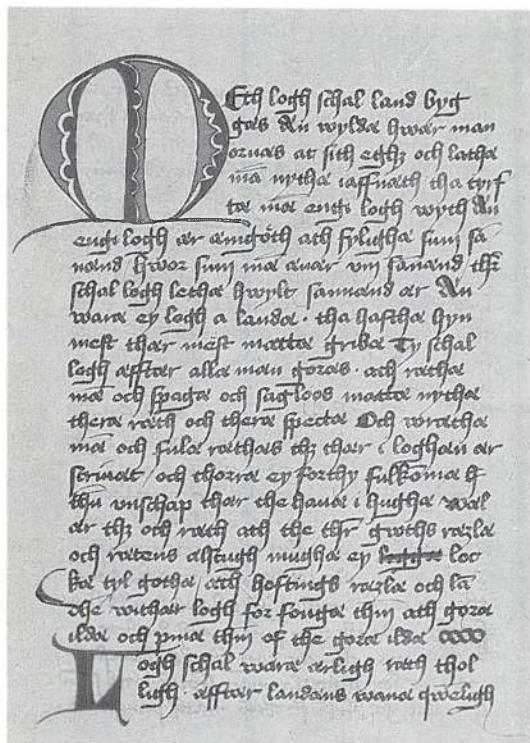 MEth logh schal land byg
gæs Æn wyldæ hwær man
oruæs at sith eghz och lathæ
mæ nythæ iaffnæth tha tyrf
tæ mæ engi logh wyth Æn
engi logh ær æmgöth ath fylughæ sum sā
nænd hwor sum mæ æuær um sānænd thr
schal logh lethæ hwylt sannænd ær Æn
waræ ey logh a landæ · tha hafthæ hyn
mest thær mest mattæ gribæ Ty schal
logh æfftær allæ mæn goræs · ath rætha
mæ och spagæ och saglöos mattæ nythæ
theræ ræth och theræ spectæ Och wrætha
mæ och fulæ ræthæs thz thær i loghæn ær
scriuæt / och thorræ ey forthy fulkōmæ
thn unschap thær the hauæ i hughæ wæl
ær thz och ræth ath the thr gwths ræzlæ
och rætens ælscugh mughæ ey loc
kæ tyl gothæ / ath hoftings ræzlæ och lā
dhe withær logh for fongæ thm ath goræ
ildæ och pinæ thm of the goræ ildæ
Logh schal waræ ærligh ræth thol
ligh · æfftær landæns wanæ qweligh